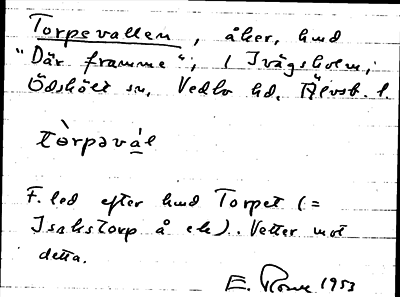 Torpevallen, åker, hmd
"Där framme", i Ivägsholm,
Ödskölt sn, Vedbo hd. Älvsb. l.
tòrpəvál
F. led efter hmd Torpet (=
Isakstorp å ek). Vetter mot
detta.
E. 1953